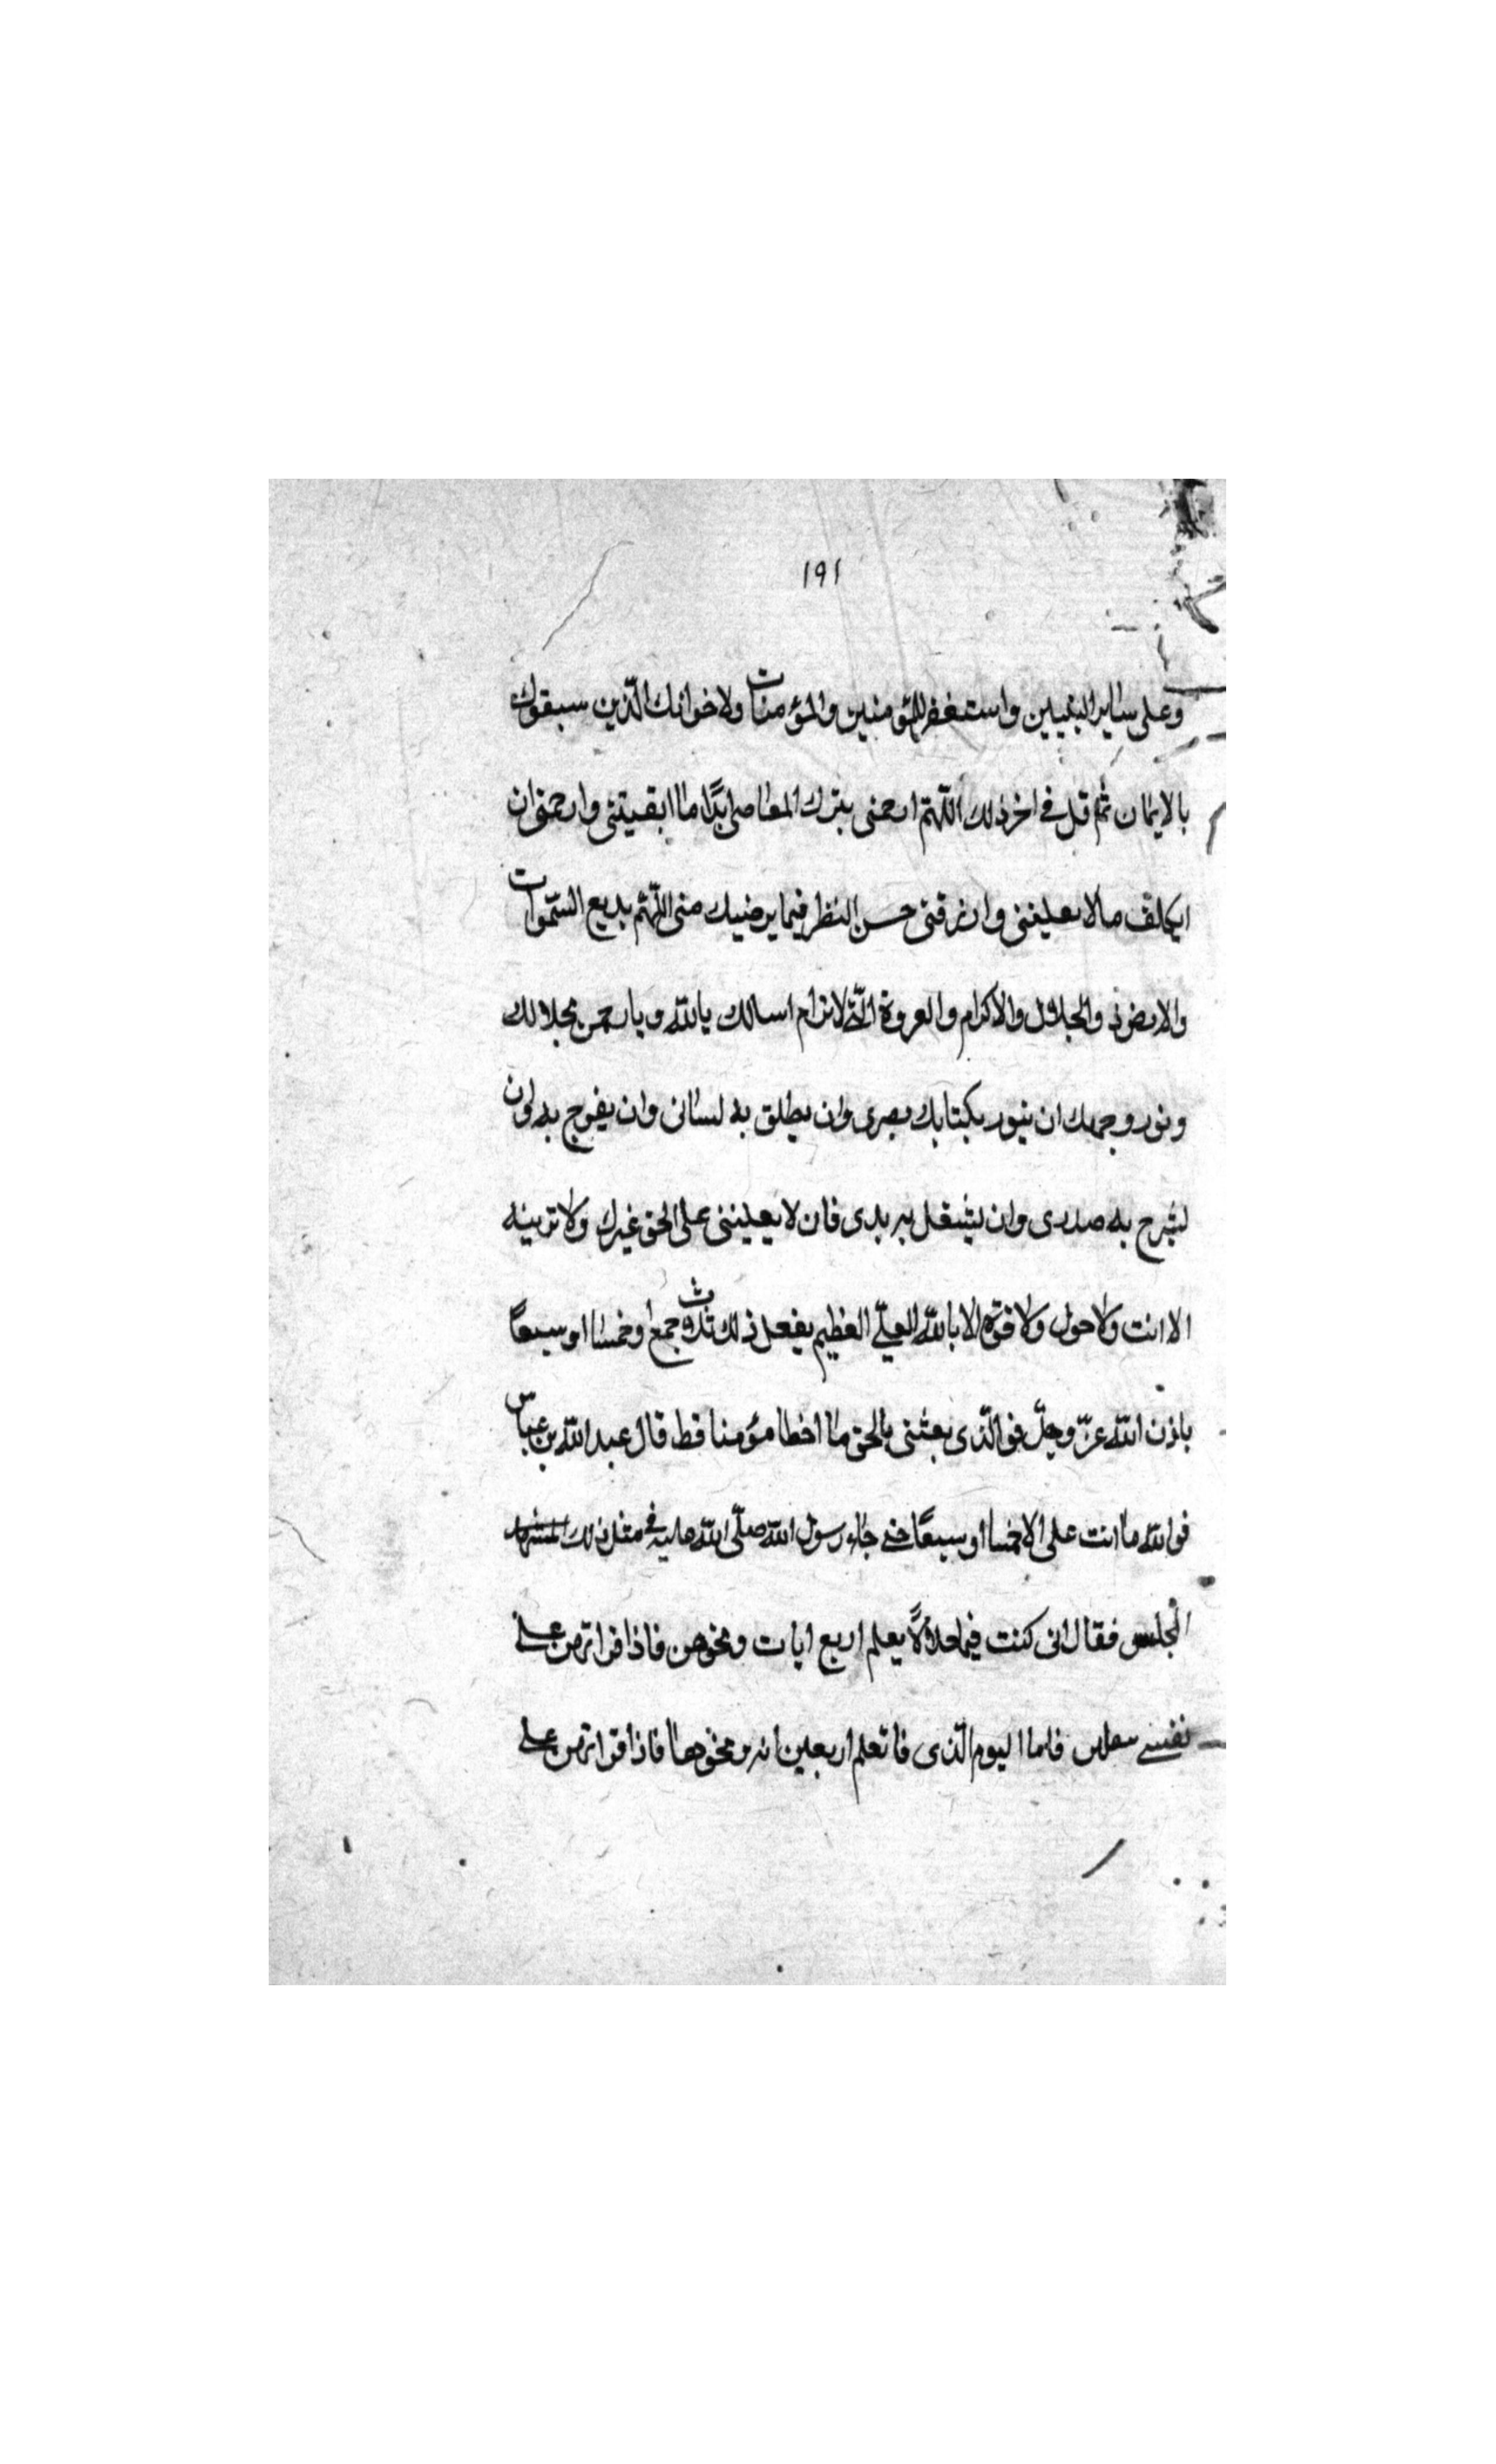 ١٩١
وعلى ساير النبيين واستغفر للمؤمنين والمؤمنات ولاخوانك الّذين سبقوك
بالايمان ثم قل في اخر ذلك اللّهمّ ارحمنى بترك المعاصى ابدًا ما ابقيتنى وارحمنى ان
اتكلف مالا يعنينى وارزقنى حسن النظر فيما يرضيك منى اللّهمّ بديع السّموات
والارض ذ والجلال والاكرام والعروة الّتى لاترام اسالك يا اللّه ويا رحمن بجلالك
ونور وجهك ان ينور بكتابك بصرى وان يطلق به لسانى وان يفرج به وان
يشرح به صدرى وان يشغل به بدى فان لا يعيننى على الحق غيرك ولا تربينه
الا انت ولا حول ولا قوّة الا باللّه العليّ العظيم يفعل ذلك ثلث جمع او خمسا او سبعًا
باذن اللّه عزّ وجلّ فو الّذى بعثنى بالحق ما اخطا مؤمنا قط قال عبد اللّه بن عباس
فو اللّه ما انت على الا خمسا او سبعًا حتى جاء رسول اللّه صلّى اللّه عليه في مثل ذلك
المجلس فقال انى كنت فيما خلا لًا يعلم اربع ايات ونحوهن فاذا قراتهن على
نفسي فاما اليوم الّذى فاتعلم اربعين ايه ونحوها فاذا قراتهن على